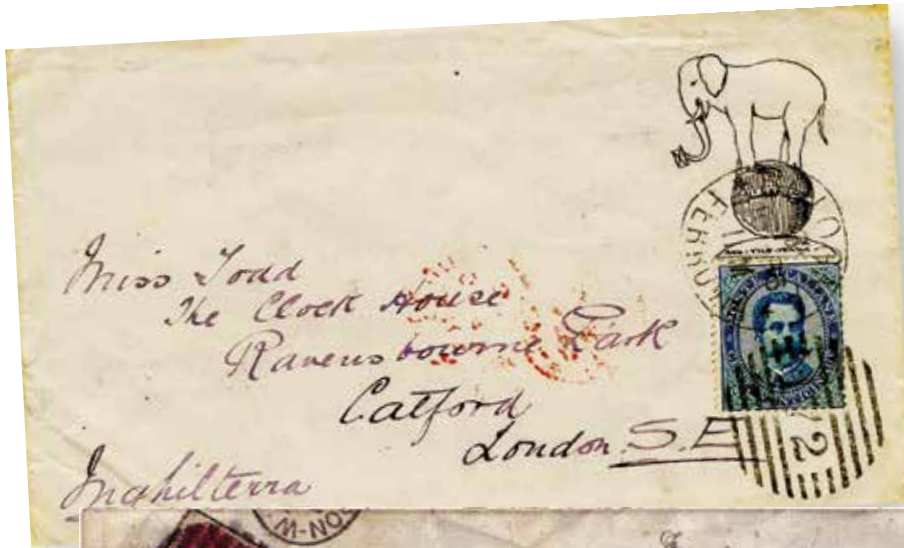 Miss Todd
The Clock House
Ravensbourne Park
Catford
London S.E
Inghilterra
72
ON-W